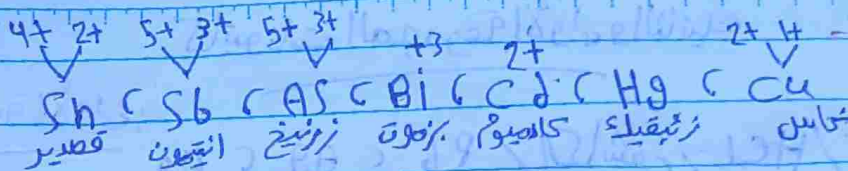 4+ 2+ 5+ 3+ 5+ 3+ +3 2+ 2+ 1+ -
Sn ( Sb ( AS ( Bi ( Cd ( Hg ( Cu
قصدير انتيمون زرنيخ بزموت كادميوم زئبقيك نحاس